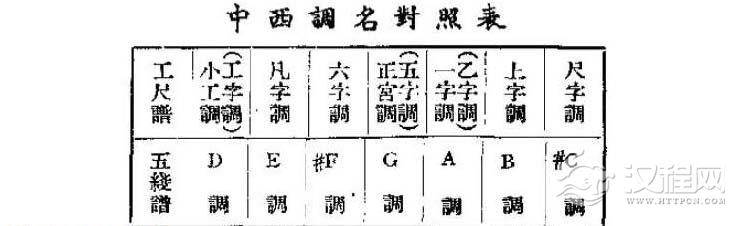 中西調名對照表
工尺譜 小工調(工字調) 凡字調 六字調 正宮調(五字調) 一字調(乙字調) 上字調 尺字調
五綫譜 D調 E調 #F調 G調 A調 B調 #C調
汉程网
WWW.HTTPCN.COM